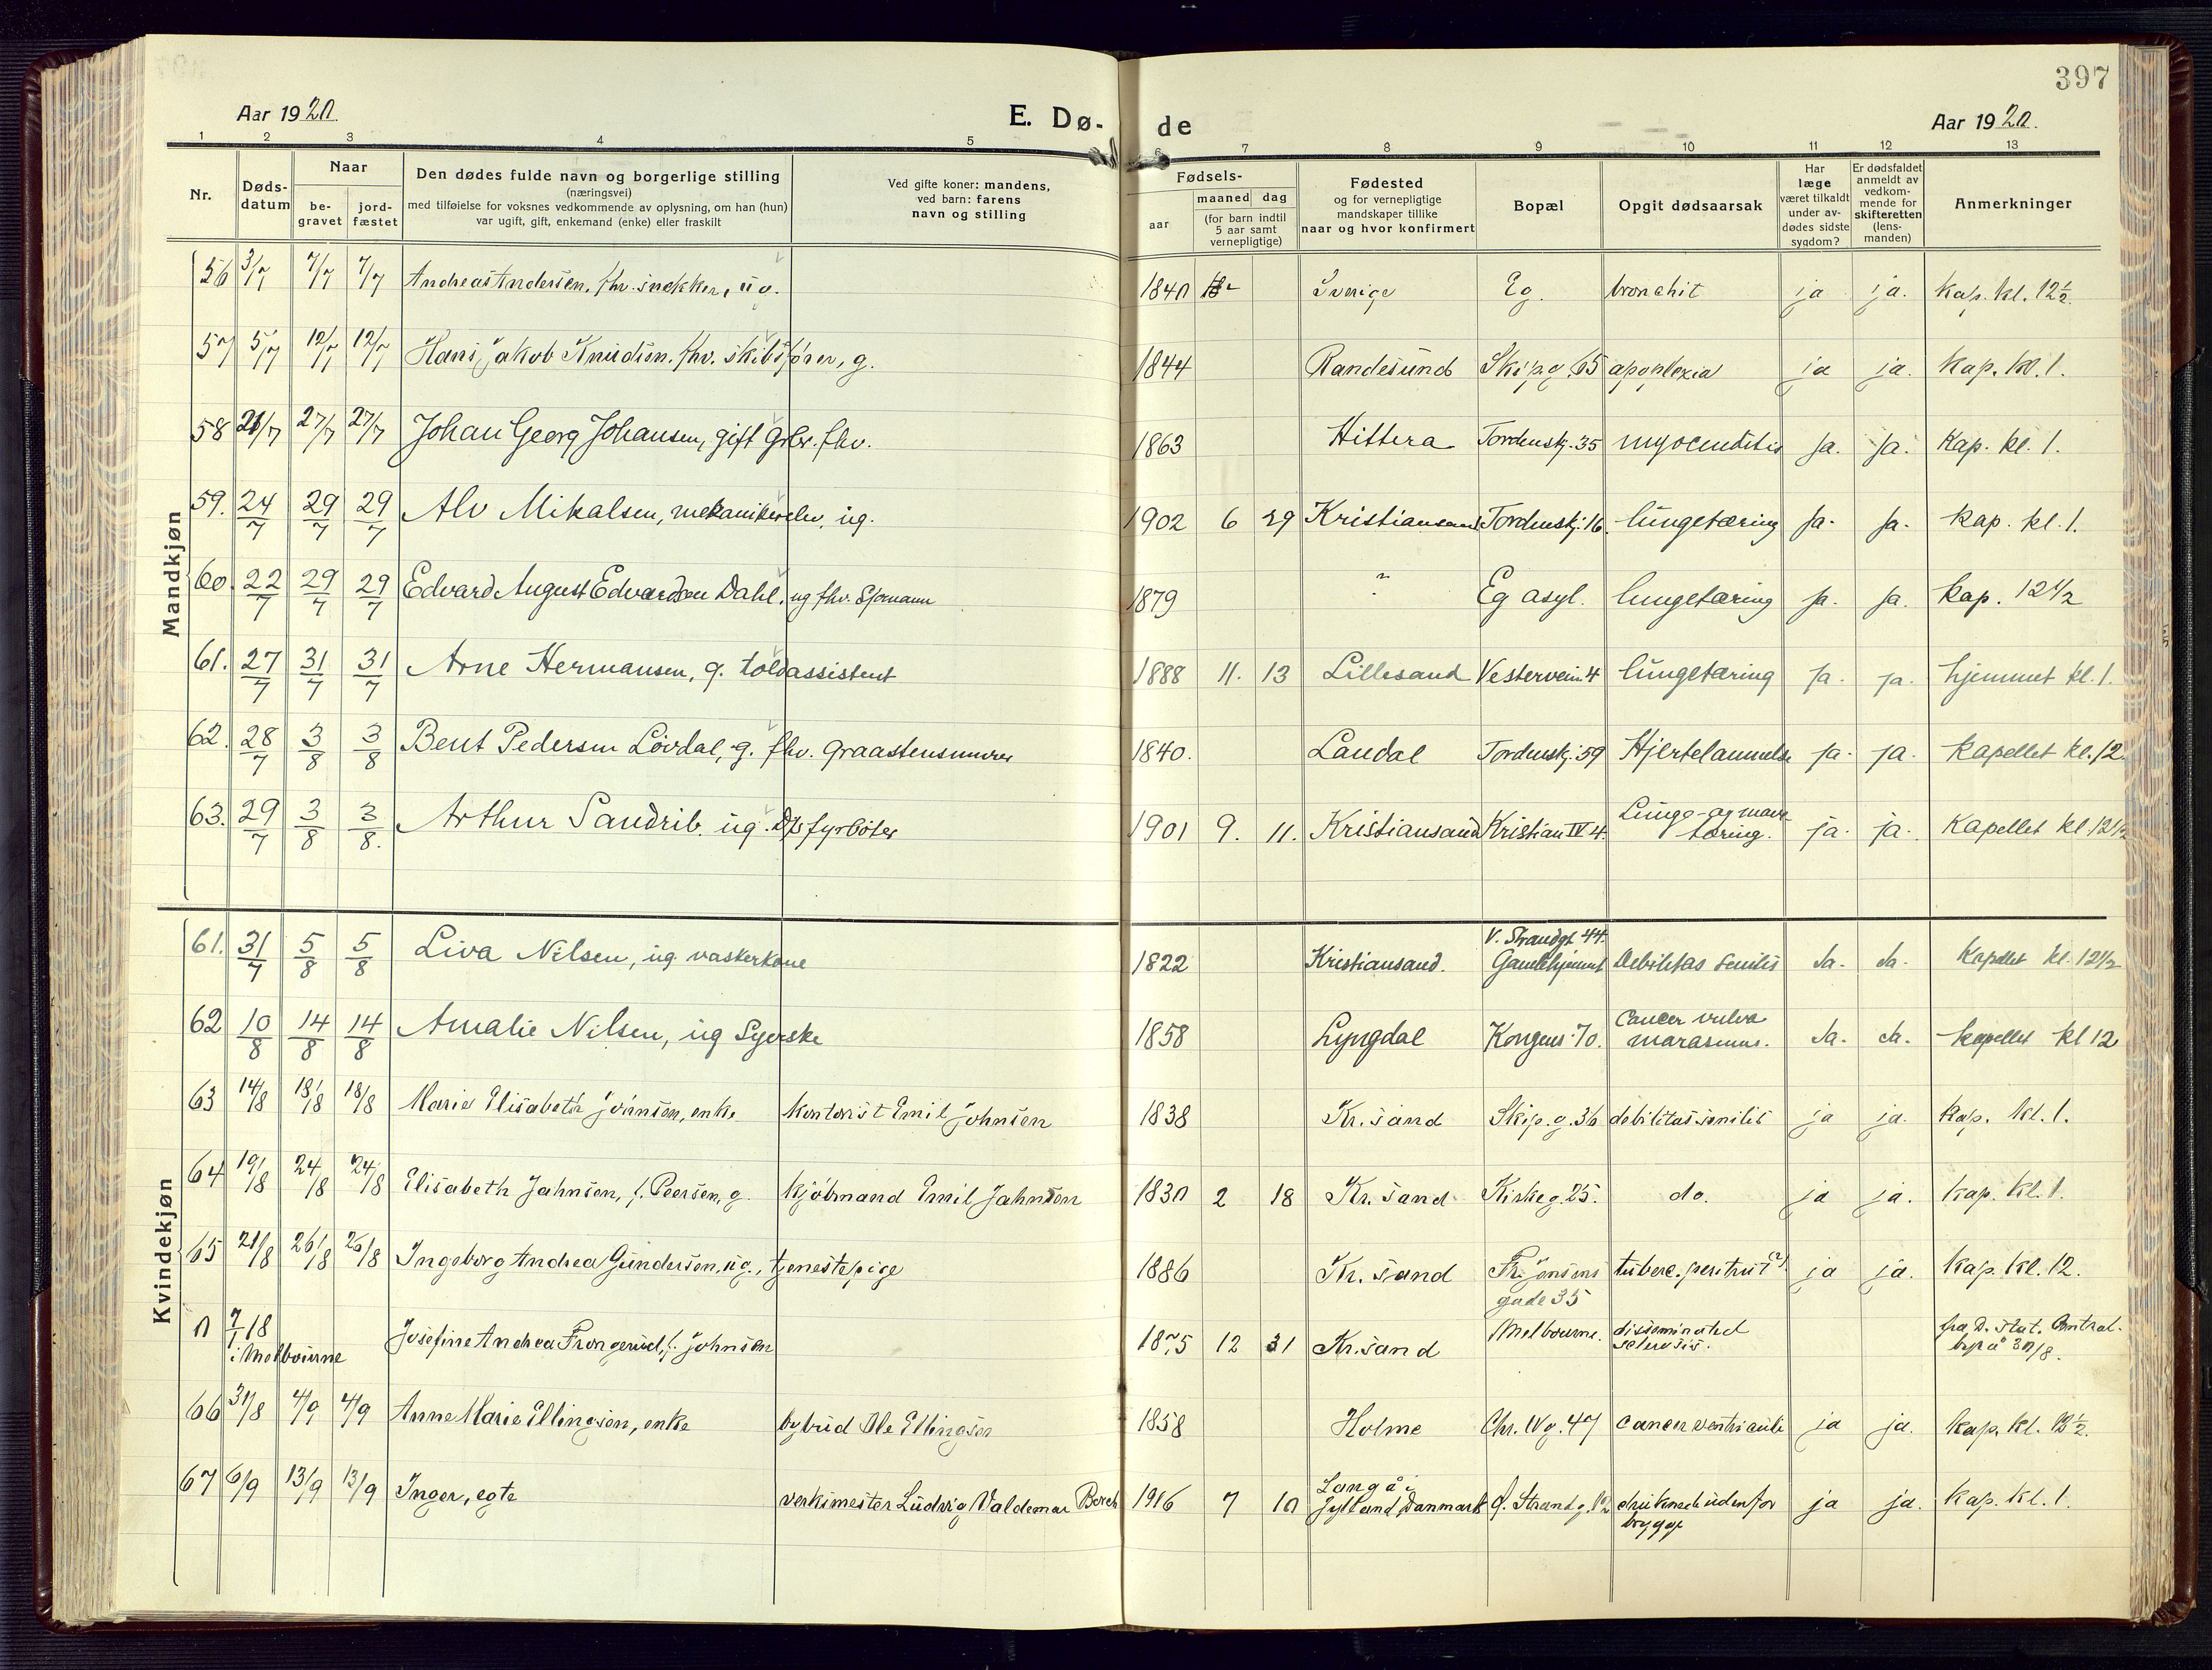 397
Aar 1920.
E. Dø- de
Aar 1920.
1 2 3 4 5 6 7 8 9 10 11 12 13
Nr.
Døds-
datum
Naar
be-
gravet
jord-
fæstet
Den dødes fulde navn og borgerlige stilling
(næringsvei)
med tilføielse for voksnes vedkommende av oplysning, om han (hun)
var ugift, gift, enkemand (enke) eller fraskilt
Ved gifte koner: mandens,
ved barn: farens
navn og stilling
Fødsels-
aar
maaned dag
(for barn indtil
5 aar samt
vernepligtige)
Fødested
og for vernepligtige
mandskaper tillike
naar og hvor konfirmert
Bopæl
Opgit dødsaarsak
Har
læge
været tilkaldt
under av-
dødes sidste
sygdom?
Er dødsfaldet
anmeldt av
vedkom-
mende for
skifteretten
(lens-
manden)
Anmerkninger
Mandkjøn
56 3/7 7/7 7/7 Andreas Andersen, fhv. snekker, ug. 1840 Sverige Eg. bronchit ja ja. kap. kl. 12½
57 5/7 12/7 12/7 Hans Jakob Knudsen, fhv. skibsfører, g. 1844 Randesund Skipg. 65 apoplexia ja ja. kap. kl. 1.
58 21/7 27/7 27/7 Johan Georg Johansen, gift Grbr. fhv. 1863 Hittera Tordenskj. 35 ja. ja. Kap. kl. 1.
59. 24/7 29/7 29/7 Alv Mikalsen, mekanikerelev, ug. 1902 6 29 Kristiansand Tordenskj. 16. lungetæring ja. ja. kap. kl. 1.
60. 22/7 29/7 29/7 Edvard August Edvardsen Dahl, ug fhv. Sjømann 1879 " Eg asyl. lungetæring ja. ja. kap. 12½
61. 27/7 31/7 31/7 Arne Hermansen, g. toldassistent 1888 11. 13 Lillesand Vesterveien 4 lungetæring ja. ja. hjemmet kl. 1.
62. 28/7 3/8 3/8 Bent Pedersen Lövdal, g. fhv. graastensmurer 1840. Laudal Tordenskj. 59 Hjertelammelse ja. ja. Kapellet kl. 12
63. 29/7 3/8 3/8. Arthur Sandrib, ug. D/s fyrböter 1901 9. 11. Kristiansand Kristian IV 4. Lunge- og
tæring. ja. ja. Kapellet kl 12½
Kvindekjøn
61. 31/7 5/8 5/8 Liva Nilsen, ug vaskerkone 1822 Kristiansand. V. Strandgt 44.
Gamlehjemmet Debilitas senilis Ja. Ja. Kapellet kl. 12½
62 10/8 14/8 14/8 Amalie Nilsen, ug Syerske 1858 Lyngdal Kongens. 70. Cancer vulva
marasmus. Ja. Ja. kapellet kl 12
63 14/8 18/8 18/8 Marie Elisabeth Johnsen, enke kontorist Emil Johnsen 1838 Kr.sand Skip.g. 36 debilitas senilis ja ja. kap. kl. 1.
64 19/8 24/8 24/8 Elisabeth Jahnsen, f. Peersen, g. kjöbmand Emil Jahnsen 1830 2 18 Kr.sand Kirkeg. 25. do. ja ja. kap. kl. 1.
65 21/8 26/8 26/8 Ingeborg Andrea Gundersen, ug., tjenestepige 1886 Kr.sand Fr. Jensens
gade 35 tuberc. (?) ja ja. kap. kl. 12.
0 7/1 18
i Melbourne Josefine Andrea Frongerud, f. Johnsen 1875 12 31 Kr.sand Melbourne. disseminated
sclerosis. fra D. stat. Central-
byrå 30/8.
66 31/8 4/9 4/9 Anne Marie Ellingsen, enke bybud Ole Ellingsen 1858 Holme Chr. IV g. 47 cancer ventriculi ja ja. kap. kl. 12½.
67 6/9 13/9 13/9 Inger, egte verksmester Ludvig Valdemar Borch 1916 7 10 Langå i
Jylland, Danmark Ø. Strandg. 12 druknede udenfor
brygge ja ja. kap. kl. 1.